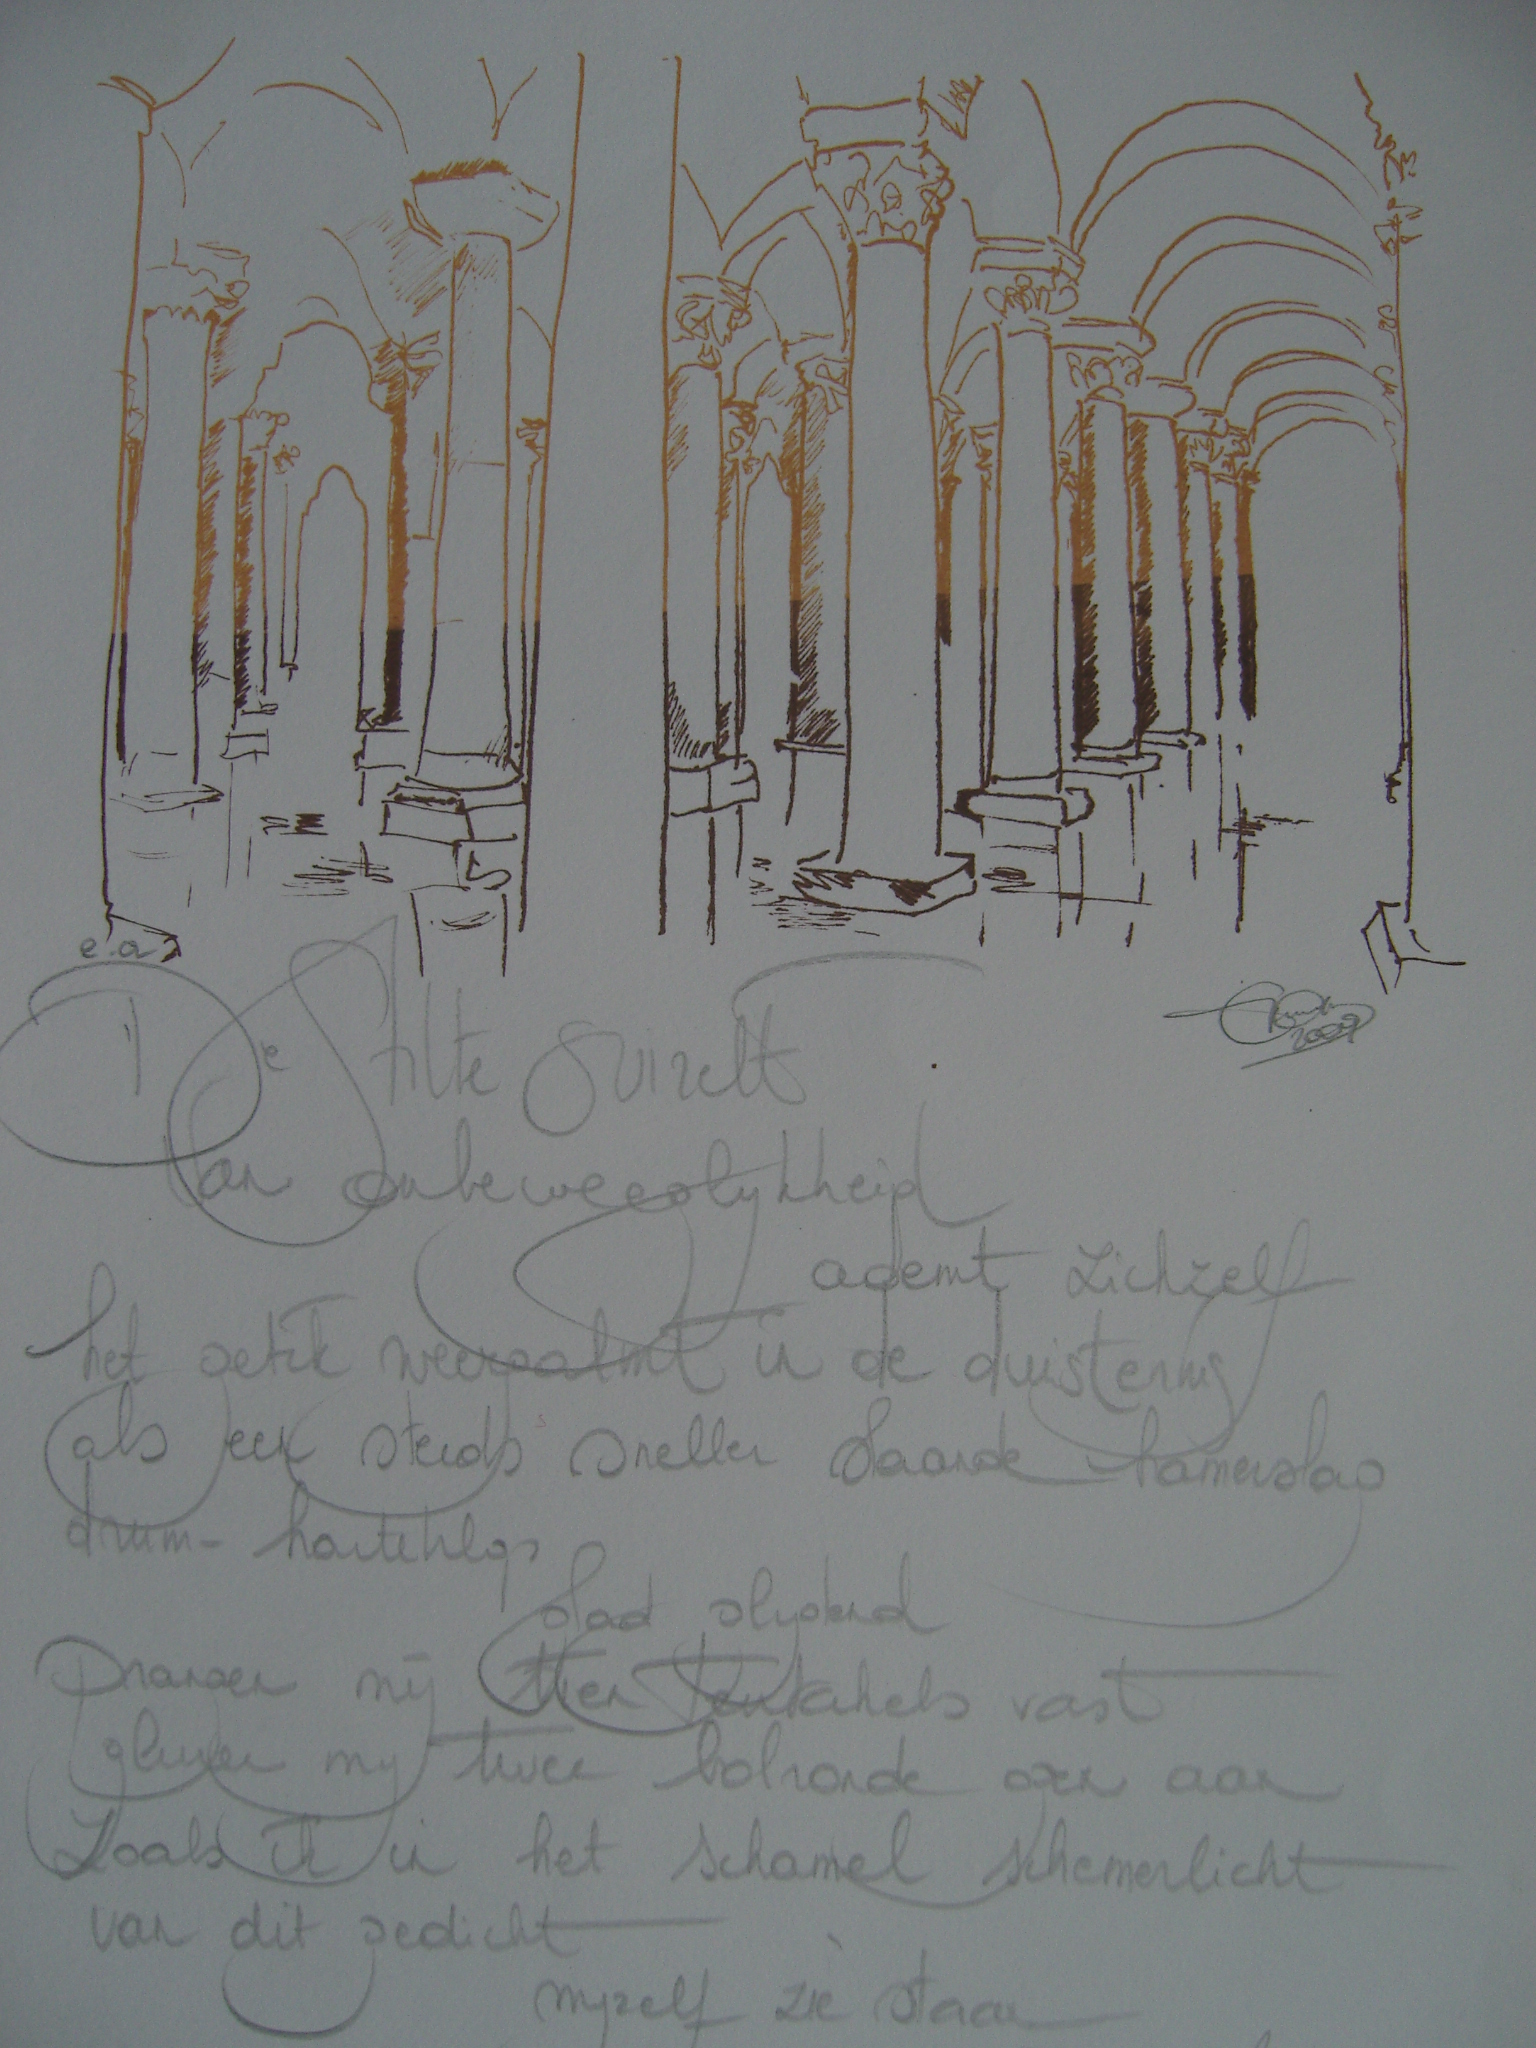 e.a
2009
De Stilte suizelt
van onbeweeglijkheid
ademt zichzelf
het getik weergalmt in de duisternis
als een steeds sneller slaande hamerslag
drum-
slad
Prangen mij tien tentakels vast
gluren mij twee bolronde ogen aan
Zoals ik in het schamel schemerlicht
van dit gedicht
mijzelf zie staan